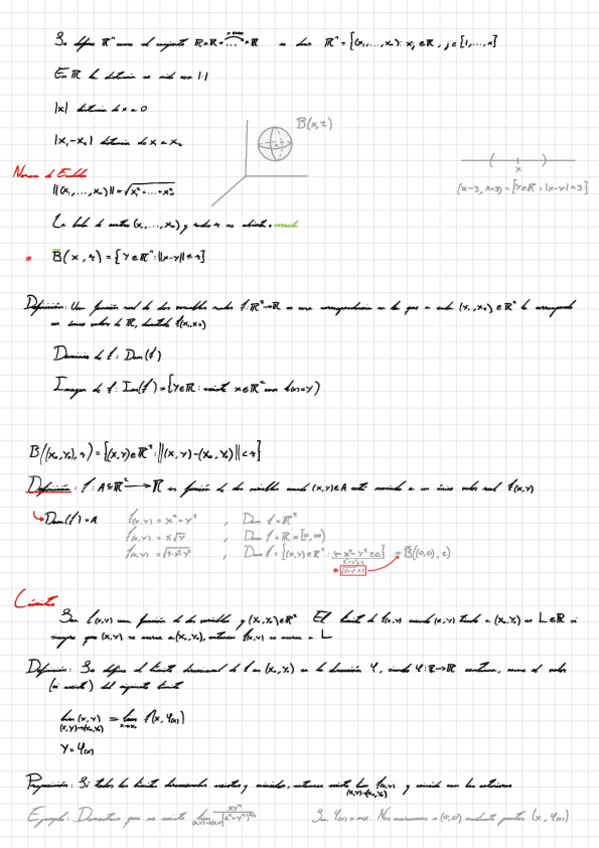 Se define ℝⁿ como el conjunto ℝ×ℝ×...×ℝ es decir ℝⁿ = {(x₁,...,xₙ): xⱼ∈ℝ, j∈{1,...,n}}
En ℝ la distancia se mide con |·|
|x| distancia de x a 0
|x₁-x₂| distancia de x₁ a x₂
B(x,r)
x
(x-3, x+3) = {y∈ℝ: |x-y|<3}
Norma de
||(x₁,...,xₙ)|| = √x₁²+...+xₙ²
La bola de centro (x₁,...,xₙ) y radio r es abierta cerrada
* B̄(x,r) = {y∈ℝⁿ: ||x-y|| ≤ r}
Definición: Una función real de dos variables reales f: ℝ²→ℝ es una correspondencia en la que a cada (x₁,x₂)∈ℝ² le corresponde
un único valor de ℝ, denotado f(x₁,x₂)
Dominio de f: Dom(f)
Imagen de f: Im(f) = {y∈ℝ: existe x∈ℝⁿ con f(x)=y}
B((x₀,y₀),r) = {(x,y)∈ℝ²: ||(x,y)-(x₀,y₀)|| < r}
Definición: f: A⊆ℝ²→ℝ es función de dos variables cuando (x,y)∈A está asociado a un único valor real f(x,y)
Dom(f)=A f(x,y) = x²+y² , Dom f = ℝ²
f(x,y) = x√y , Dom f = ℝ×[0,∞)
f(x,y) = √4-x²-y² , Dom f = {(x,y)∈ℝ²: 4-x²-y²≥0} = B̄((0,0),2)
Límites
Sea f(x,y) una función de dos variables y (x₀,y₀)∈ℝ² El límite de f(x,y) cuando (x,y) tiende a (x₀,y₀) es L∈ℝ si
siempre que (x,y) se acerca a (x₀,y₀), entonces f(x,y) se acerca a L
Definición: Se define el límite direccional de f en (x₀,y₀) en la dirección φ, siendo φ: ℝ→ℝ continua, como el valor
(si existe) del siguiente límite
lim (x,y) = lim f(x,φ(x))
(x,y)→(x₀,y₀) x→x₀
y=φ(x)
Proposición: Si todos los límites direccionales existen y coinciden, entonces existe lim f(x,y) y coincide con los anteriores
(x,y)→(x₀,y₀)
Ejemplo: Demostrar que no existe lim Sea φ(x)=mx. Nos acercamos a (0,0) mediante puntos (x,φ(x))